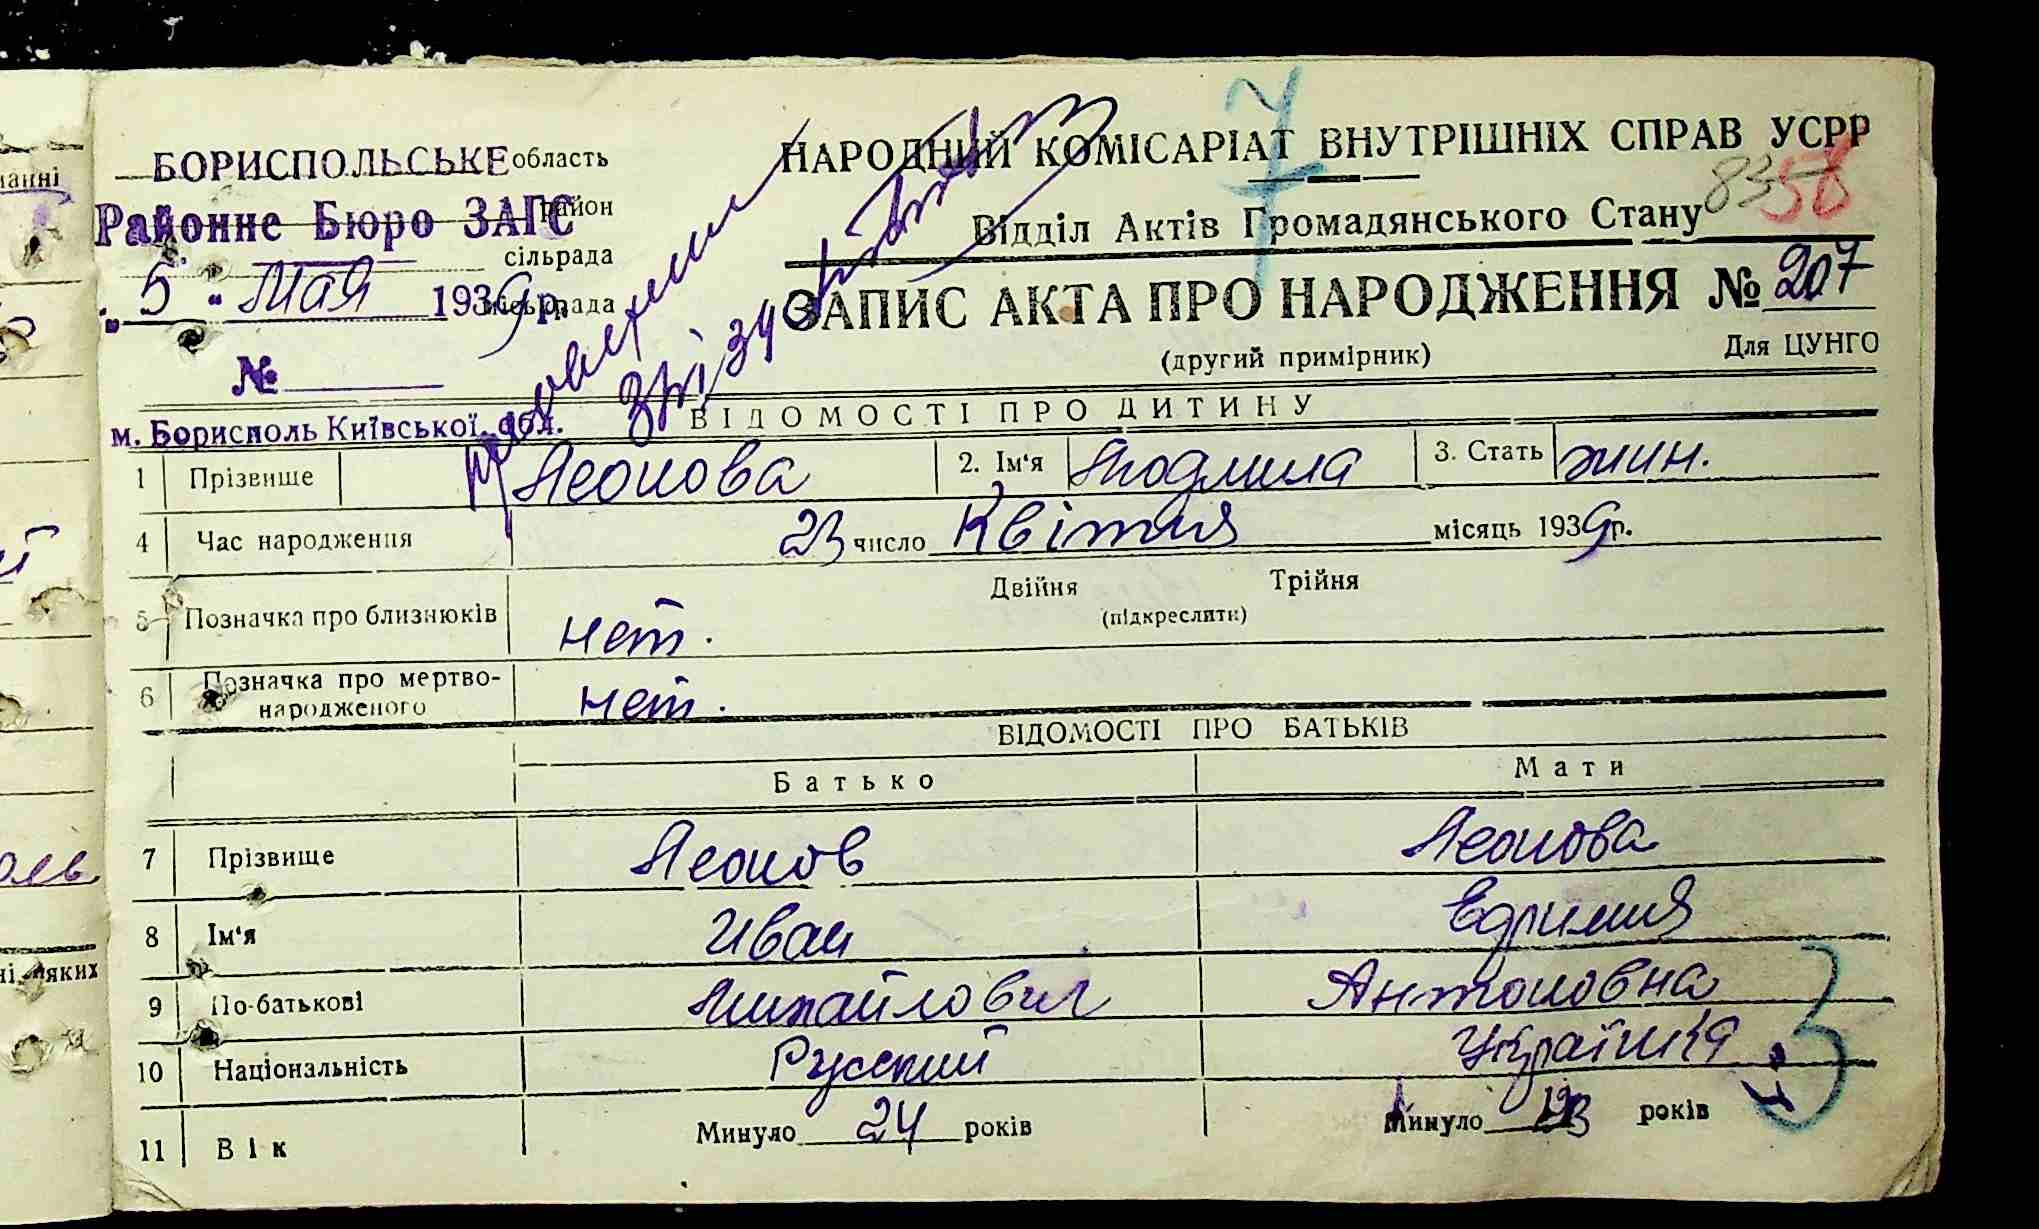 НАРОДНИЙ КОМІСАРІАТ ВНУТРІШНІХ СПРАВ УСРР
7
83 58
БОРИСПОЛЬСЬКЕ область
Районне Бюро ЗАГС район
сільрада
"5" Мая 1939 р. міськрада
№
м. Бориспіль Київської обл.
Відділ Актів Громадянського Стану
ЗАПИС АКТА ПРО НАРОДЖЕННЯ № 207
(другий примірник) Для ЦУНГО
ВІДОМОСТІ ПРО ДИТИНУ
1 Прізвище Леонова 2. Ім'я Людмила 3. Стать жин.
4 Час народження 23 число Квітня місяць 1939 р.
5 Позначка про близнюків нет. Двійня Трійня
(підкреслити)
6 Позначка про мертво-
народженого нет.
ВІДОМОСТІ ПРО БАТЬКІВ
Батько Мати
7 Прізвище Леонов Леонова
8 Ім'я Иван Ефимия
9 По-батькові Михайлович Антоновна
10 Національність Русский Українка
3
11 Вік Минуло 24 років Минуло років